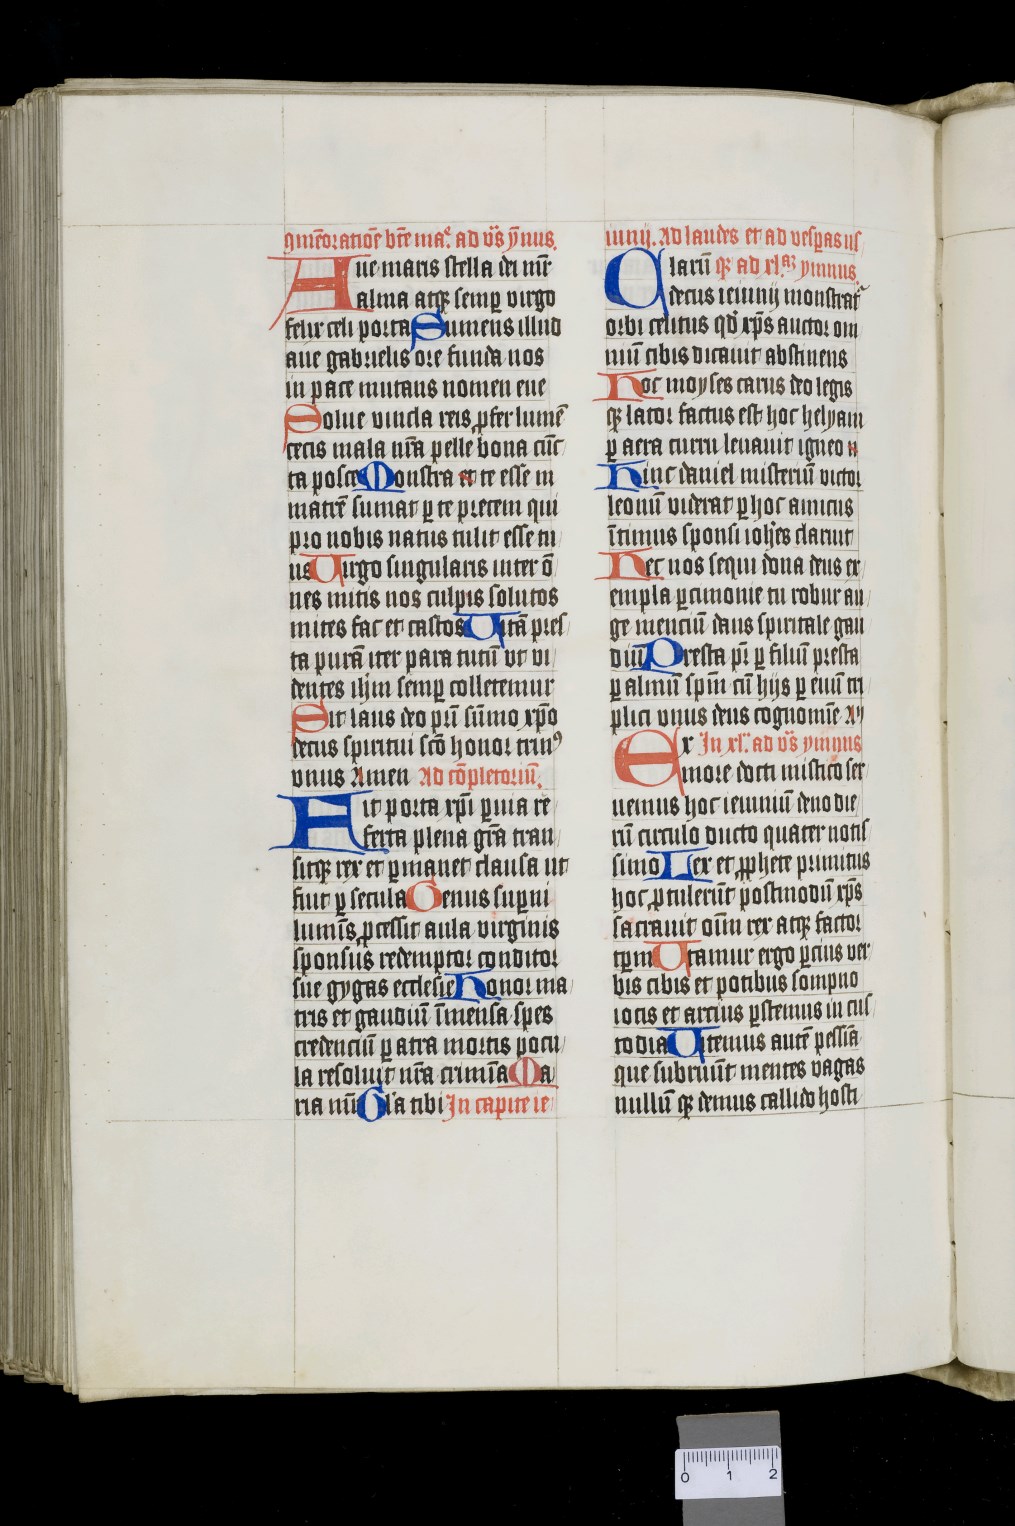 ꝯmēoratiōe bt̄e maͤ. ad vs̄ ȳnus.
Aue maris stella dei mr̄
alma atqꝫ semꝑ virgo
felix celi porta Sumens illud
aue gabrielis ore funda nos
in pace mutans nomen eue
Solue vincla reis ꝓfer lumē
cecis mala nr̄a pelle bona cūc
ta posce Monstra te esse
matrē sumat ꝑ te precem qui
pro nobis natus tulit esse tu
us Uirgo singularis inter ō
nes mitis nos culpis solutos
mites fac et castos Uitā pres
ta purā iter para tutū vt vi
dentes ihm̄ semꝑ colletemur
Sit laus deo pr̄i sūmo xp̄o
decus spiritui scō honor trinꝰ
vnus Amen Ad cōpletoriū.
Fit porta xp̄i ꝑuia re
ferta plena gr̄a tran
sitqꝫ rex et ꝑmanet clausa ut
fuit ꝑ secula Genus suꝑni
lumīs ꝓcessit aula virginis
sponsus redemptor conditor
sue gygas ecclesie Honor ma
tris et gaudiū īmensa spes
credenciū ꝑ atra mortis pocu
la resoluit nr̄a crimīa Ma
ria mū Gl̄a tibi In capite ie
iunij. Ad laudes et ad vesꝑas us
Clarū qꝫ ad xl.aꝫ ymnus.
decus ieiunij monstrat᷑
orbi celitus qd̄ xp̄s auctor om
niū cibis dicauit abstinens
Hoc moyses carus deo legis
qꝫ lator factus est hoc helyam
ꝑ aera curru leuauit igneo
Hinc daniel misteriū victor
leonū viderat ꝑ hoc amicus
ītimus sponsi ioh̄es claruit
Hec nos sequi dona deus ex
empla ꝑcimonie tu robur au
ge menciū dans spiritale gau
diū Presta pr̄ ꝑ filiū presta
ꝑ almū spm̄ cū hijs ꝑ euū tri
plici vnus deus cognomīe
Ex In xl. ad vs̄ ymnus
more docti mistico ser
uemus hoc ieiuniū deno die
rū circulo ducto quater notis
simo Lex et ꝓphete primitus
hoc ꝓtulerūt postmodū xp̄s
sacrauit oīm rex atqꝫ factor
tꝑm Utamur ergo ꝑcius ver
bis cibis et potibus sompno
iocis et arcius ꝑstemus in cus
todia Uitemus autē pessīa
que subruūt mentes vagas
nullū qꝫ demus callido hosti